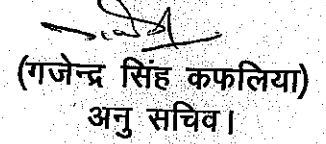 (गजेन्द्र सिंह कफलिया)
अनु सचिव।